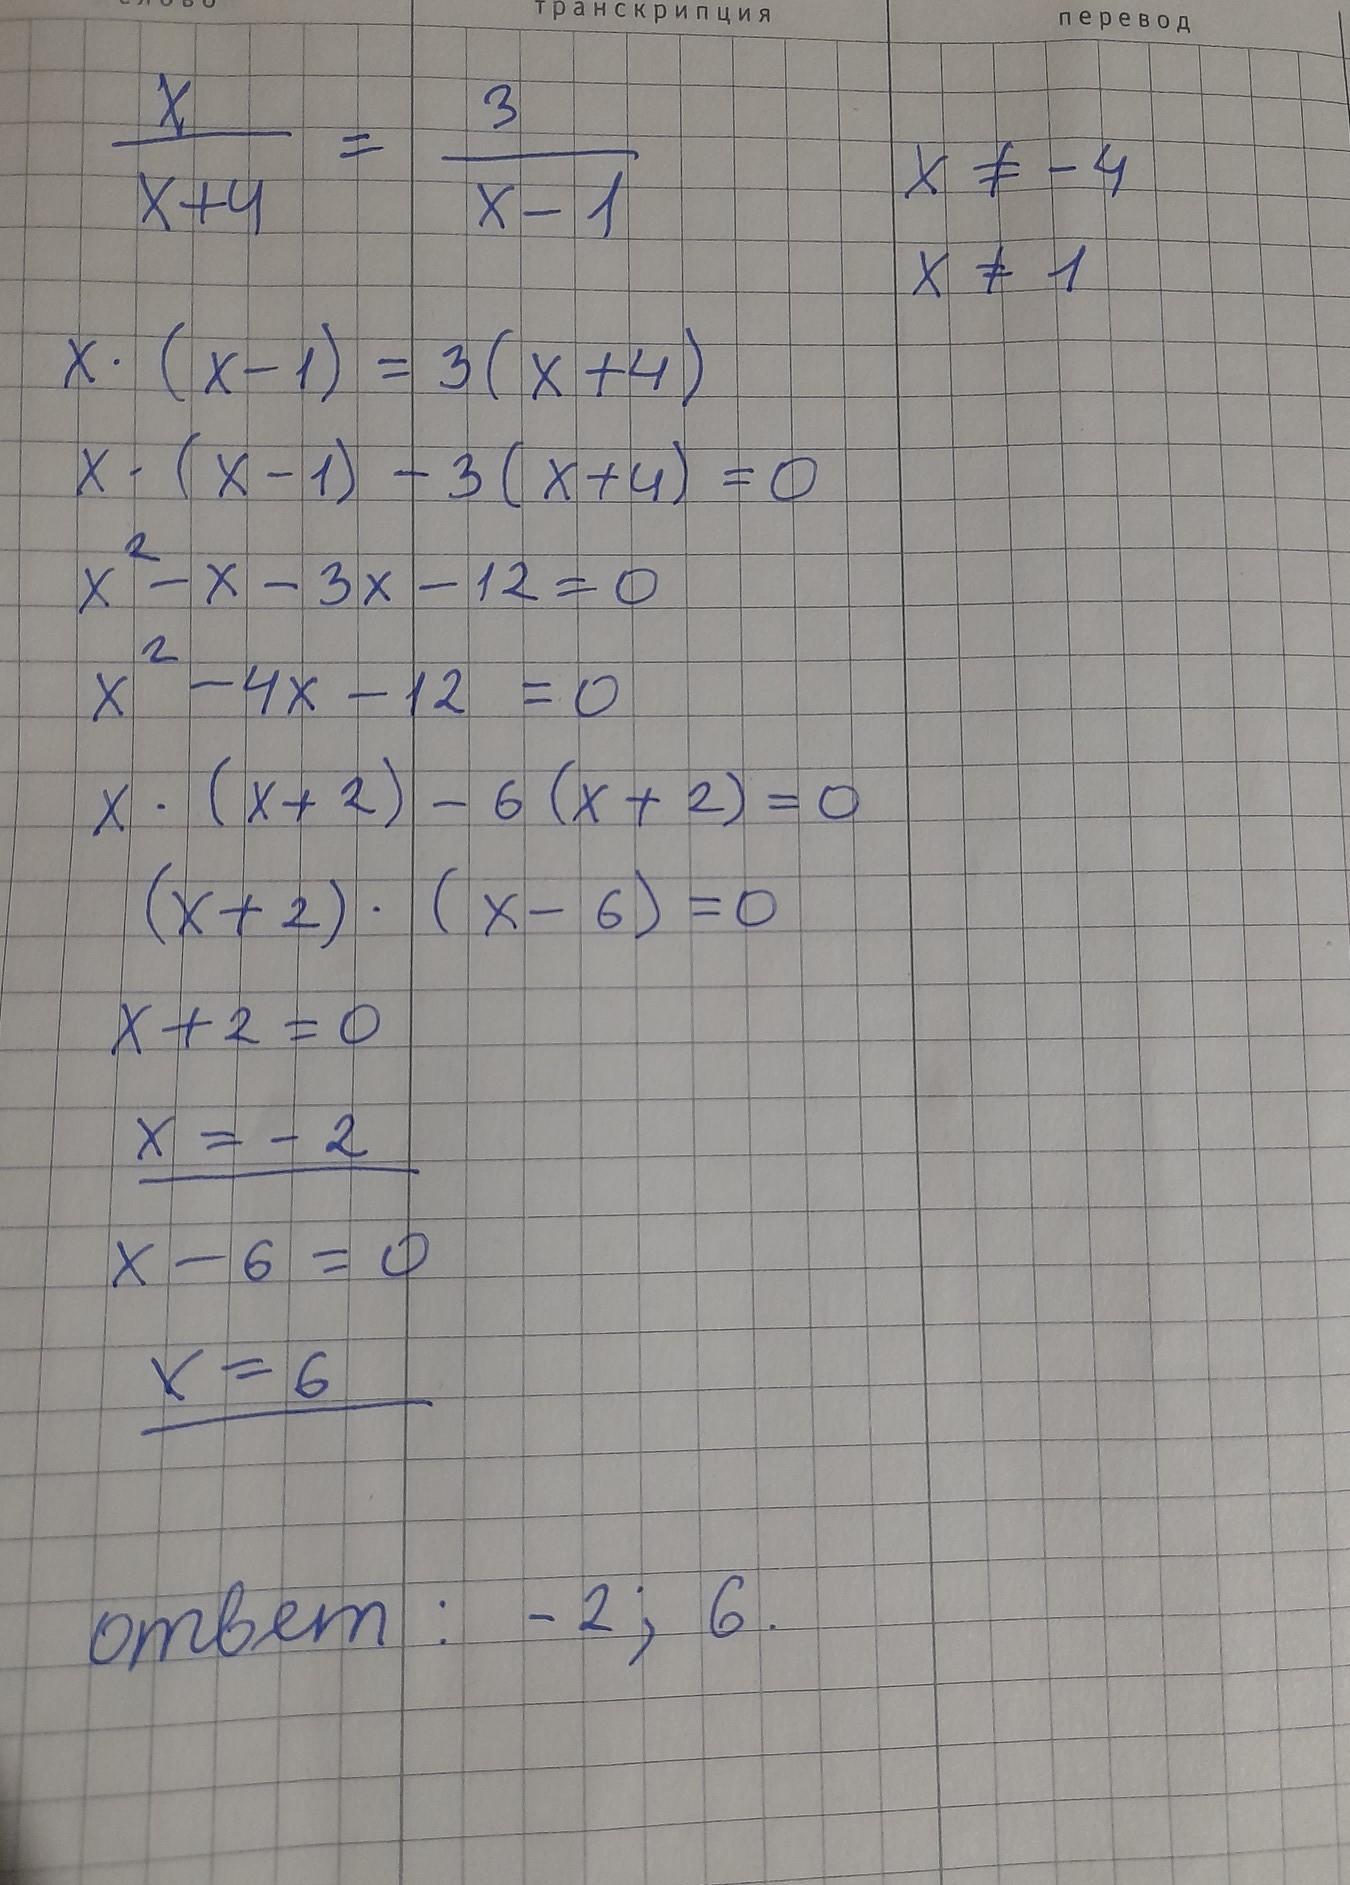 слово транскрипция перевод
x/(x+4) = 3/(x-1)
x ≠ -4
x ≠ 1
x· (x-1) = 3(x+4)
x· (x-1) - 3(x+4) = 0
x² - x - 3x - 12 = 0
x² - 4x - 12 = 0
x · (x+2) - 6(x+2) = 0
(x+2) · (x-6) = 0
x+2 = 0
x = -2
x - 6 = 0
x = 6
ответ : -2; 6.